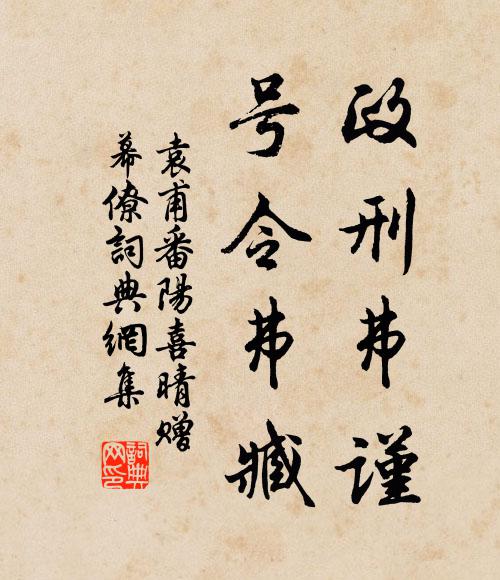 政刑弗謹
号令弗臧
袁甫番陽喜晴贈
幕僚詞典網集
詞典
网印